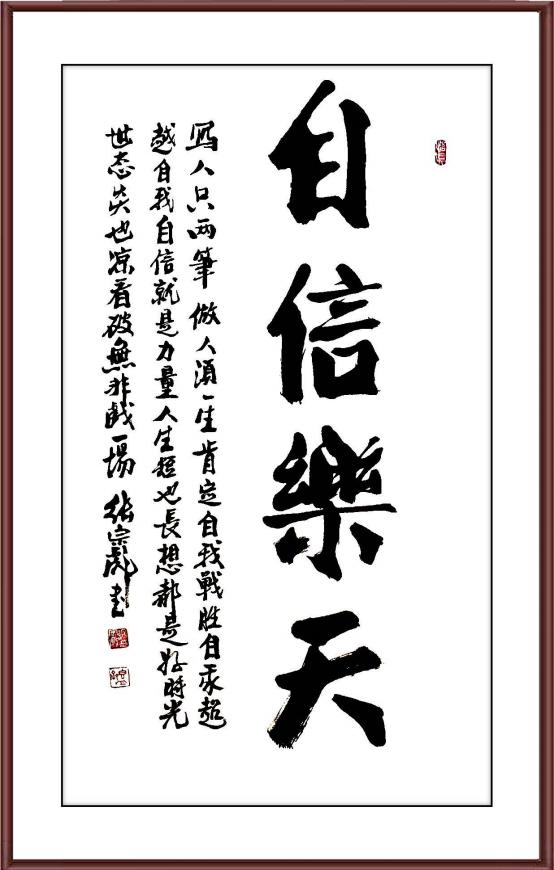 自信樂天
寫人只兩筆 做人須一生 肯定自我戰勝自我超
越自我自信就是力量人生短也長想都是好時光
世态炎也凉看破無非戲一場 張宗彪書